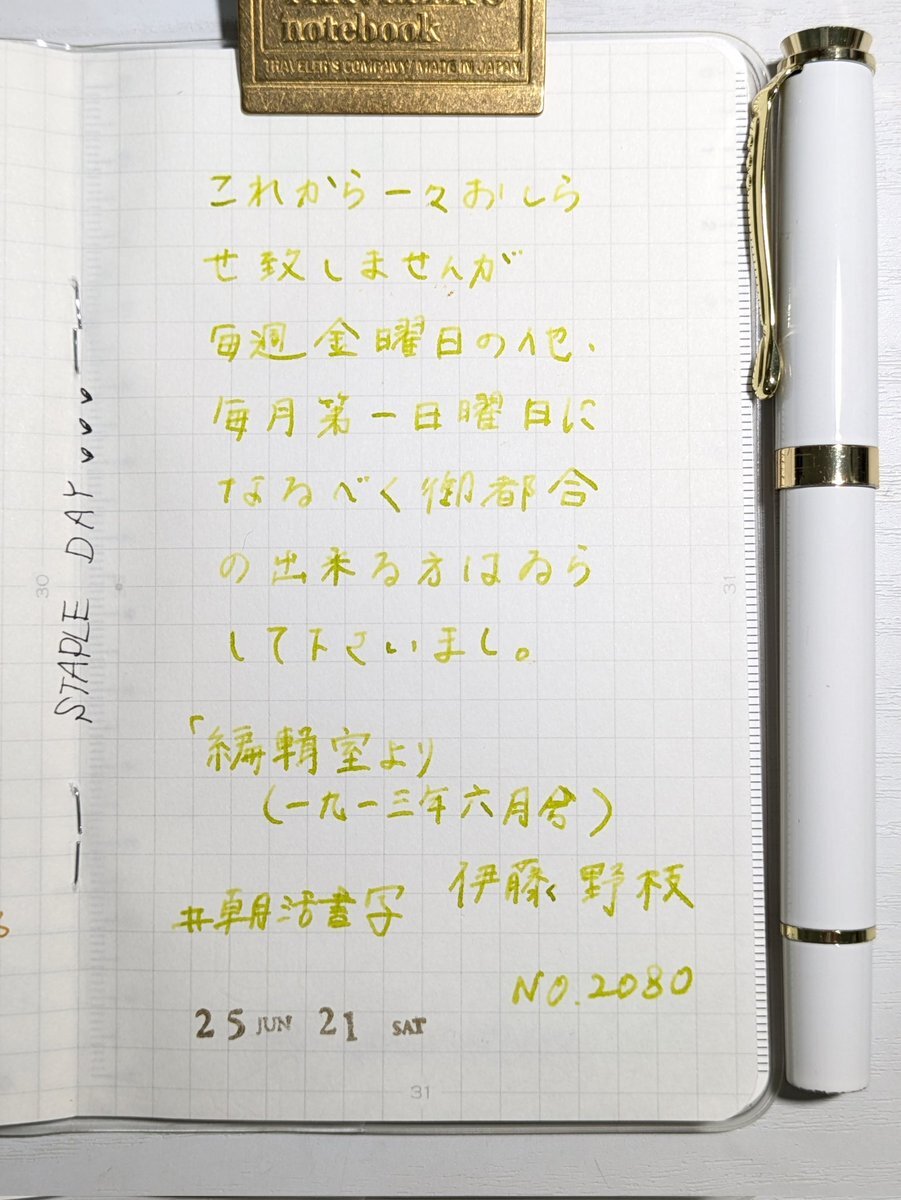 notebook
TRAVELER'S COMPANY MADE IN JAPAN
これから一々おしら
せ致しませんが
毎週金曜日の他、
毎月第一日曜日に
なるべく御都合
の出来る方はゐら
して下さいまし。
「編輯室より
(一九一三年六月号)
伊藤野枝
#朝活書写
NO.2080
25 JUN 21 SAT
31
31
30
STAPLE DAY